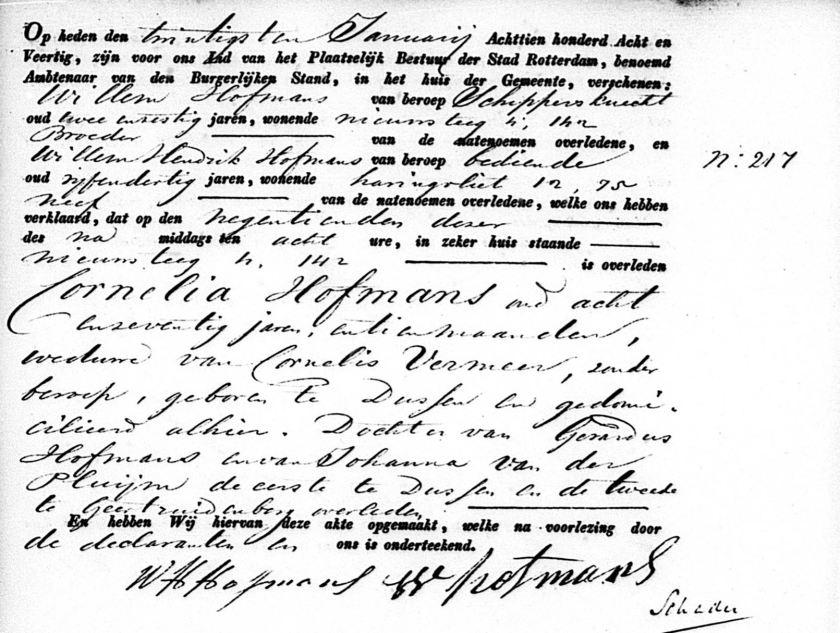 Op heden den twintigsten Januarij Achttien honderd Acht en
Veertig, zijn voor ons Lid van het Plaatselijk Bestuur der Stad Rotterdam, benoemd
Ambtenaar van den Burgerlijken Stand, in het huis der Gemeente, verschenen:
Willem Hofmans van beroep Schippersknecht
oud twee enzestig jaren, wonende nieuwsteeg 4, 142
Broeder van de natenoemen overledene, en
Willem Hendrik Hofmans van beroep bediende
oud vijfendertig jaren, wonende haringvliet 12, 75
neef van de natenoemen overledene, welke ons hebben
verklaard, dat op den negentienden dezer
des na middags ten acht ure, in zeker huis staande
nieuwsteeg 4, 142 is overleden
Cornelia Hofmans oud acht
enzeventig jaren, en tien maanden,
weduwe van Cornelis Vermeer, zonder
beroep, geboren te Dussen en gedomi-
cilieerd alhier. Dochter van Gerardus
Hofmans en van Johanna van der
Pluijm de eerste te Dussen en de tweede
te Geertruidenberg overleden
En hebben Wij hiervan deze akte opgemaakt, welke na voorlezing door
de declaranten en ons is onderteekend.
WHHofmans W hofmans
Schadee
N: 217